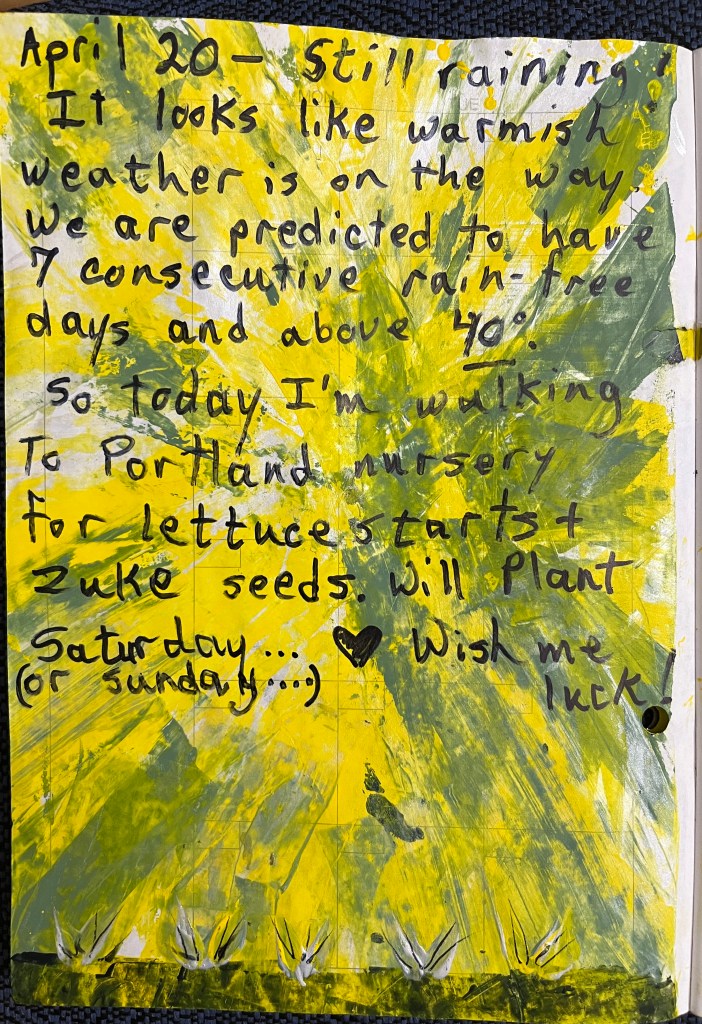 April 20 - Still raining!
It looks like warmish
weather is on the way.
We are predicted to have
7 consecutive rain-free
days and above 40°.
So today I'm walking
To Portland nursery
for lettuce starts +
zuke seeds. Will Plant
Saturday... ♥ Wish me
(or sunday....) luck!